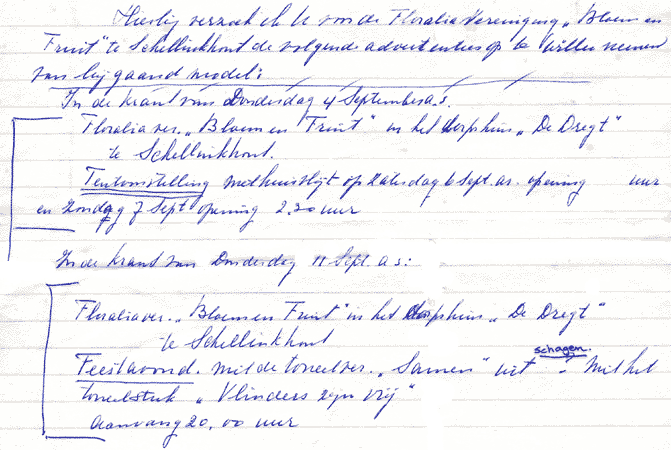 Hierbij verzoek ik U voor de Floralia Vereniging „Bloem en
Fruit" te Schellinkhout de volgende advertenties op te willen nemen
van bijgaand model:
In de krant van Donderdag 4 September a.s.
Floralia ver. „Bloem en Fruit" in het dorphuis „De Dregt"
te Schellinkhout.
Tentoonstelling met huisvlijt op Zaterdag 6 Sept. a.s. opening uur
en Zondag 7 Sept opening 2.30 uur
In de krant van Donderdag 11 Sept. a s:
Floralia ver. „Bloem en Fruit" in het dorphuis „De Dregt"
te Schellinkhout
schagen.
Feestavond. met de toneelver. „Samen" uit ? Met het
toneelstuk „Vlinders zijn vrij"
Aanvang 20,00 uur